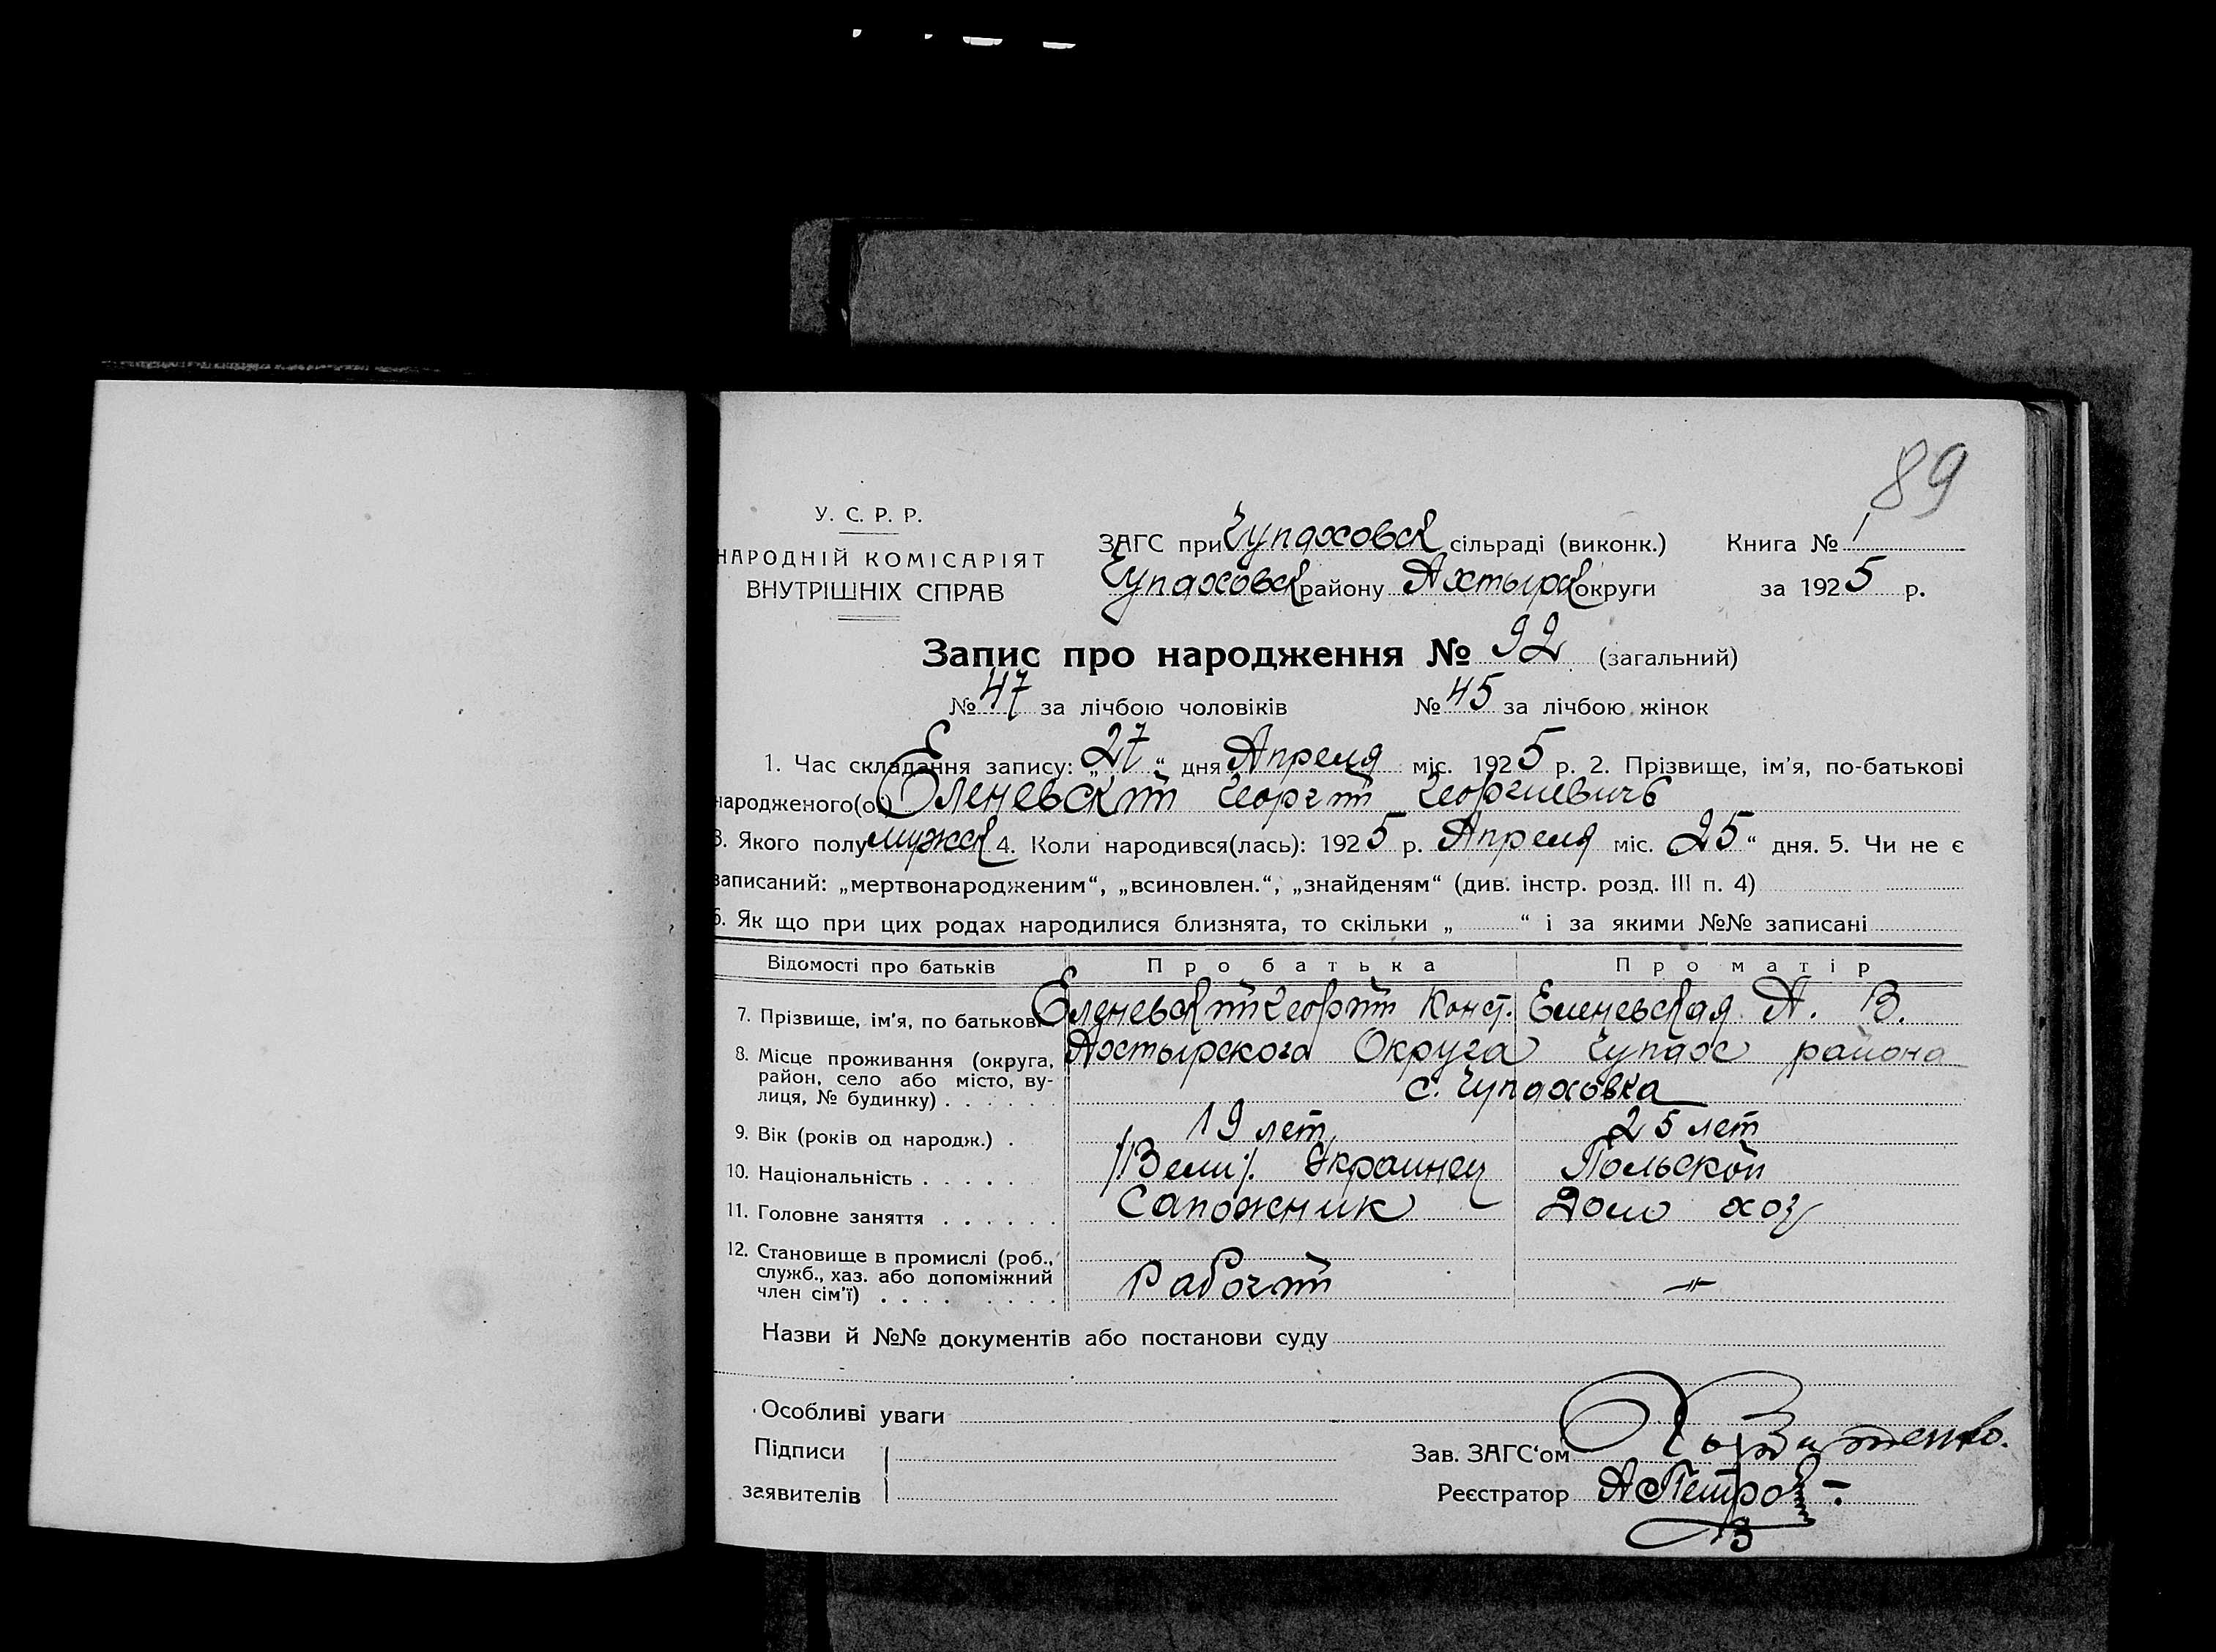 89
У. С. Р. Р.
НАРОДНІЙ КОМІСАРІЯТ
ВНУТРІШНІХ СПРАВ
ЗАГС при Чупаховск сільраді (виконк.) Книга № 1
Чупаховск району Ахтырск округи за 1925 р.
Запис про народження № 92 (загальний)
№ 47 за лічбою чоловіків № 45 за лічбою жінок
1. Час складання запису: „27“ дня Апреля міс. 1925 р. 2. Прізвище, ім'я, по-батькові
народженого(ої) Еленевский Георгий Георгиевичъ
3. Якого полу мужск 4. Коли народився(лась): 1925 р. Апреля міс. „25“ дня. 5. Чи не є
записаний: „мертвонародженим“, „всиновлен.“, „знайденям“ (див. інстр. розд. III п. 4)
6. Як що при цих родах народилися близнята, то скільки „ “ і за якими №№ записані
Відомості про батьків Про батька Про матір
7. Прізвище, ім'я, по батькові Еленевский Георгий Конст. Еленевская А. В.
8. Місце проживання (округа, район, село або місто, вулиця, № будинку) Ахтырского Округа Чупах района
с. Чупаховка
9. Вік (років од народж.) 19 лет 25 лет
10. Національність /Вели/. Украинец Польской
11. Головне заняття Сапожник Дом хоз
12. Становище в промислі (роб., служб., хаз. або допоміжний член сім'ї) Рабочий -"-
Назви й №№ документів або постанови суду
Особливі уваги
Підписи
заявителів
Зав. ЗАГС'ом
Реєстратор АПетров